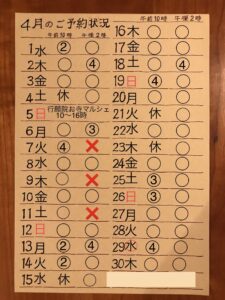 4月のご予約状況
午前10時 午後2時
1水 ② ○
2木 ○ ④
3金 ○ ○
4土 休 ○
5日 行願院お寺マルシェ 10〜16時
6月 ○ ③
7火 ④ ×
8水 ○ ○
9木 ○ ×
10金 ○ ○
11土 ○ ×
12日 ○ ○
13月 ② ④
14火 ② ○
15水 休 ○
午前10時 午後2時
16木 ○ ○
17金 ○ ○
18土 ○ ④
19日 ④ ○
20月 ○ ○
21火 休 ○
22水 ○ ○
23木 休 ○
24金 ○ ○
25土 ③ ○
26日 ③ ○
27月 ○ ○
28火 ○ ○
29水 ④ ○
30木 ○ ○